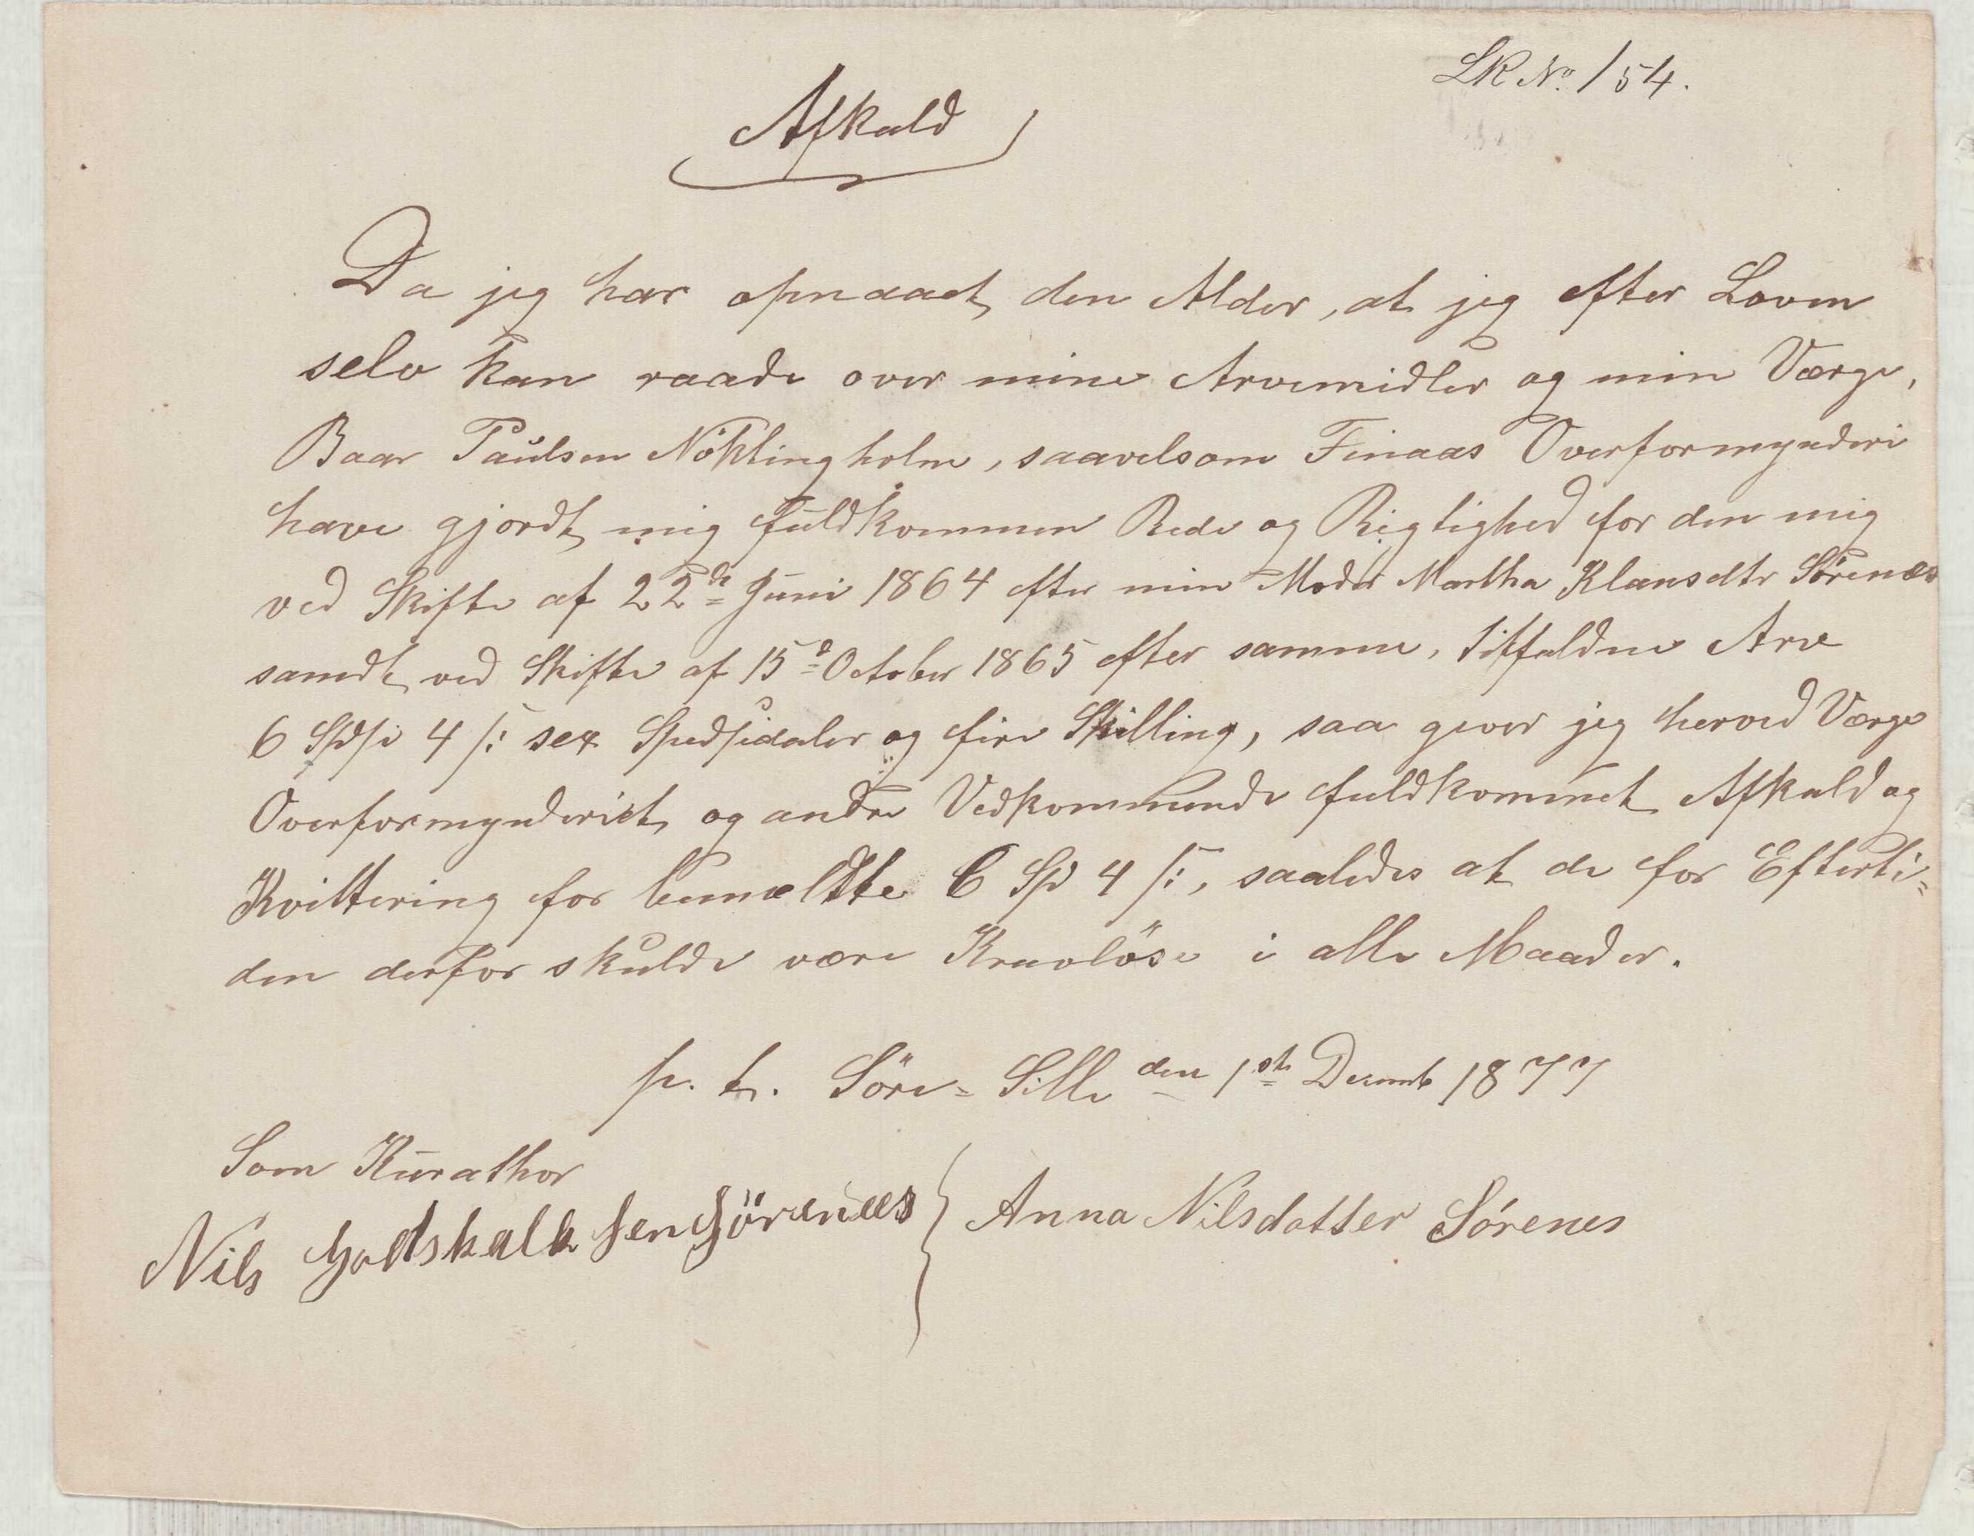 LR No 154.
Afkald
Da jeg har opnaaet den Alder, at jeg efter Loven
selv kan raade over mine Arvemidler og min Værge,
Baar Paulsen Nöklingholm, saavelsom Finaas Overformynderi
have gjordt mig fuldkommen Rede og Rigtighed for den mig
ved Skifte af 22de Juni 1864 efter min Moder Martha Klausdtr Sörenæs
samdt ved Skifte af 15d October 1865 efter samme, tilfaldne Arv
6 Spd 4 s: sex Spedsidaler og fire Skilling, saa giver jeg herved Værge
Overformynderiet og andre Vedkommende fuldkommet Afkald og
Kvittering for bemeldte 6 Spd 4 s:, saaledes at de for Efterti=
den derfor skulde være Kravlöse i alle Maader.
p. t. Söre=Sille den 1ste Decemb 1877
Som Kurathor
Nils Godskalksen Sörenæs Anna Nilsdatter Sörenes